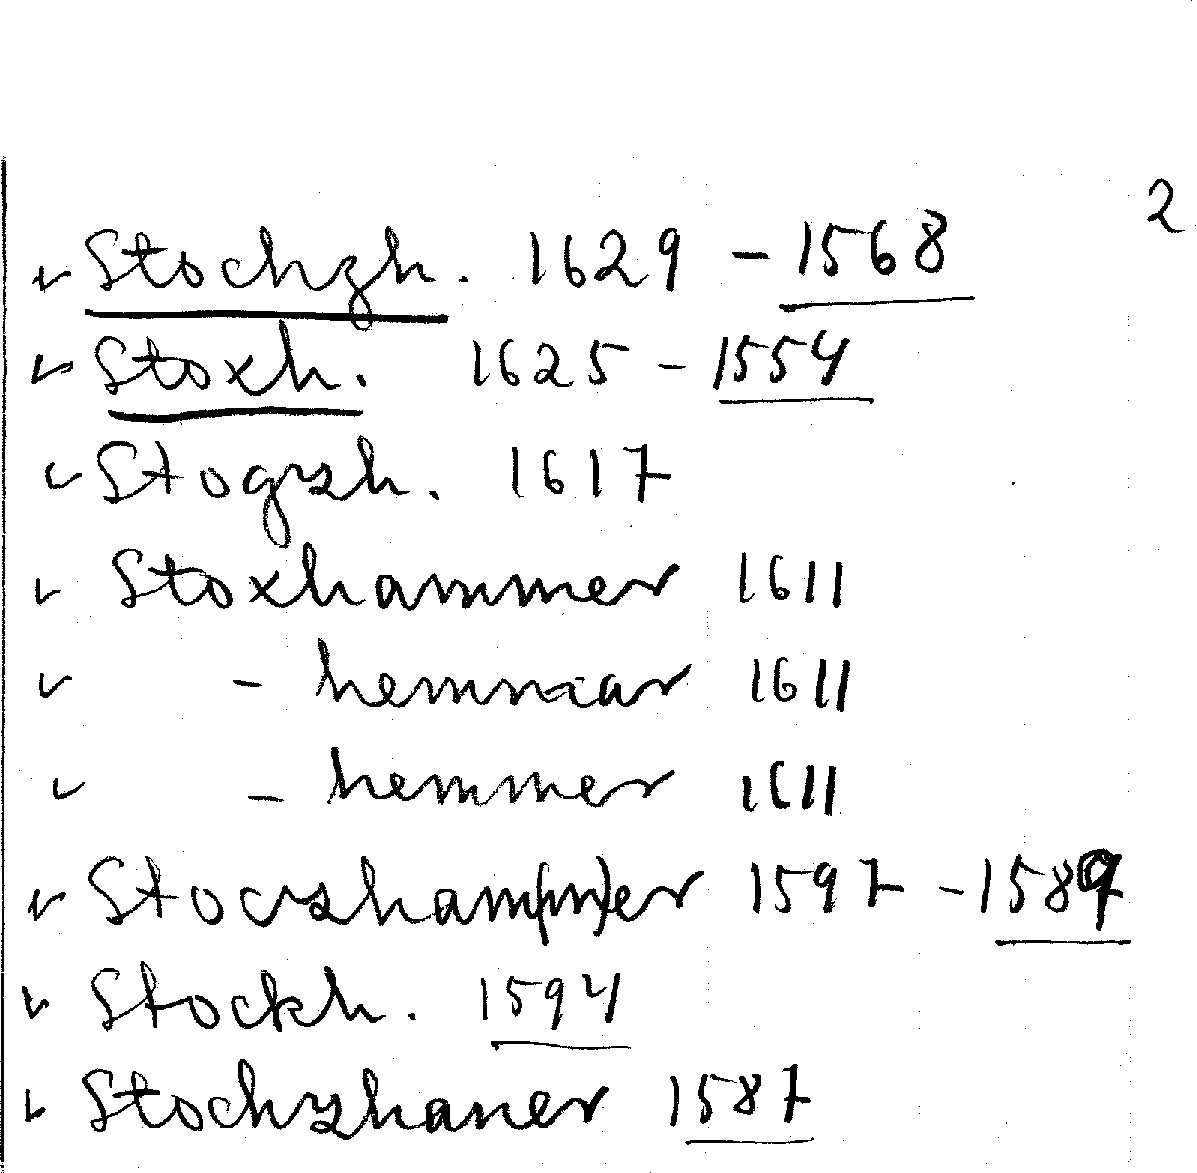 2
✓ Stochzh. 1629 - 1568
✓ Stoxh. 1625 - 1554
✓ Stogzh. 1617
✓ Stoxhammer 1611
✓ - hemmar 1611
✓ - hemmer 1611
✓ Stoczham(m)er 1597 - 1589
✓ Stockh. 1594
✓ Stochzhaner 1587